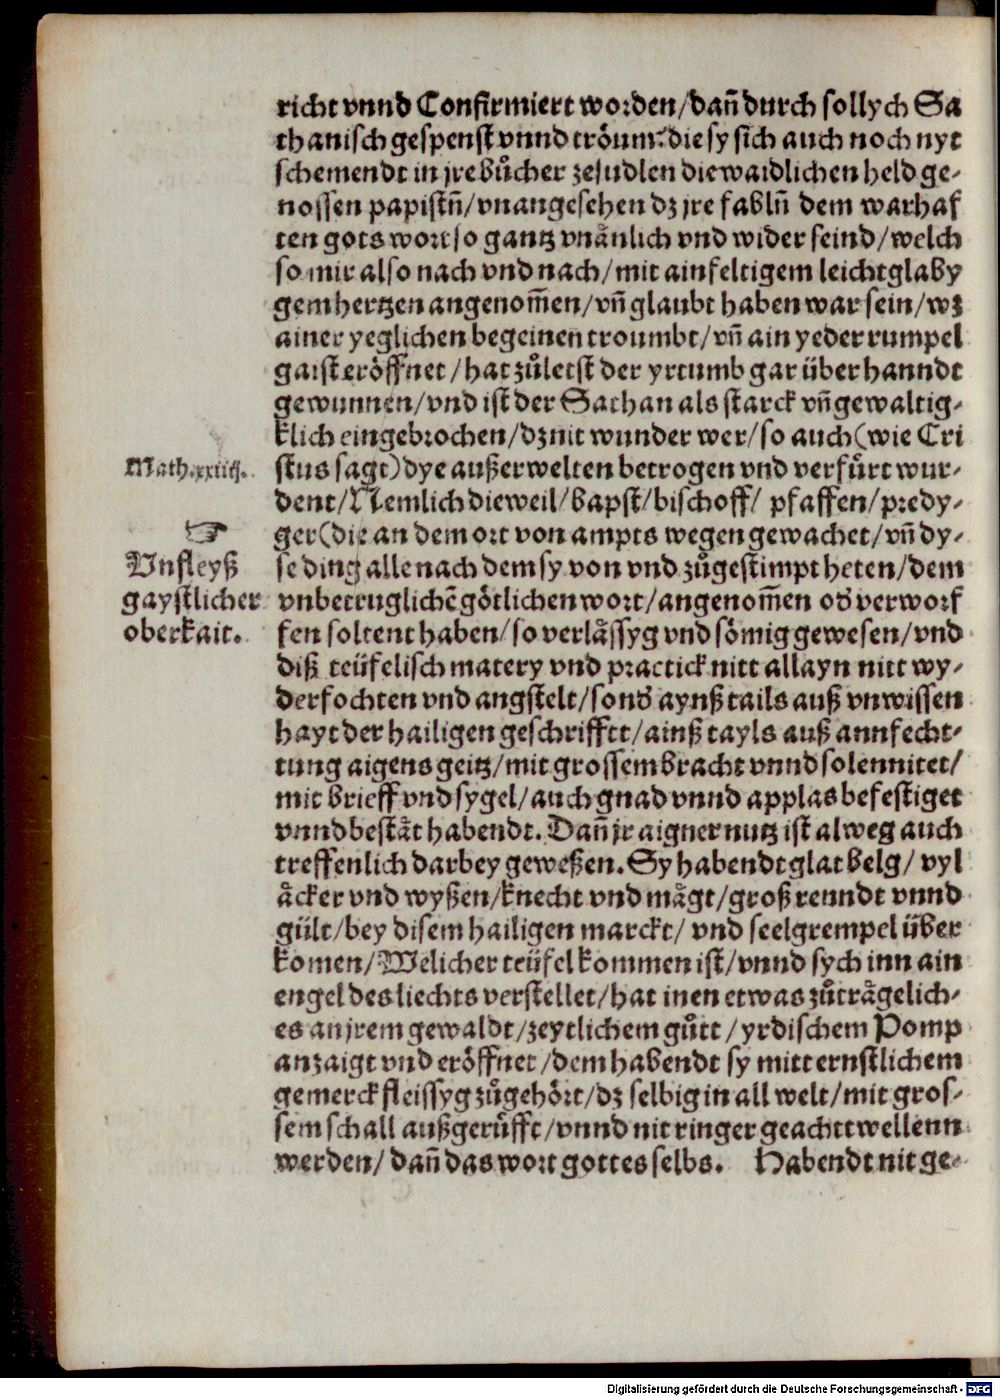 richt vnnd Confirmiert worden/dañ durch sollych Sa
thanisch gespenst vnnd tröum/die sy sich auch noch nyt
schemendt in jre bůcher zesudlen die waidlichen held ge-
nossen papistñ/vnangesehen dz jre fablñ dem warhaf
ten gots wort so gantz vnånlich vnd wider seind/welch
so mir also nach vnd nach/mit ainfeltigem leichtglaby
gem hertzen angenom̃en/vñ glaubt haben war sein/wz
ainer yeglichen begeinen troumbt/vñ ain yeder rumpel
gaist eröffnet/hat zůletst der yrtumb gar überhanndt
gewunnen/vnd ist der Sathan als starck vñ gewaltig-
klich eingebrochen/dz nit wunder wer/so auch (wie Cri
Math.xxiiij.
stus sagt) dye außerwelten betrogen vnd verfürt wur-
dent/Nemlich dieweil/bapst/bischoff/ pfaffen/predy-
ger (die an dem ort von ampts wegen gewachet/vñ dy-
Vnfleyß
gaystlicher
oberkait.
se ding alle nach dem sy von vnd zůgestimpt heten/dem
vnbetruglichẽ götlichen wort/angenom̃en od᷑ verworf
fen soltent haben/so verlåssyg vnd sömig gewesen/vnd
diß teüfelisch matery vnd practick nitt allayn nitt wy-
derfochten vnd angstelt/sond᷑ aynß tails auß vnwissen
hayt der hailigen geschrifftt/ainß tayls auß annfecht-
tung aigens geitz/mit grossem bracht vnnd solennitet/
mit brieff vnd sygel/auch gnad vnnd applas befestiget
vnnd beståt habendt. Dañ jr aigner nutz ist alweg auch
treffenlich darbey geweßen. Sy habendt glat belg/ vyl
åcker vnd wyßen/knecht vnd mågt/groß renndt vnnd
gült/bey disem hailigen marckt/ vnd seelgrempel über
komen/Welicher teüfel kommen ist/vnnd sych inn ain
engel des liechts verstellet/hat inen etwas zůtrågelich-
es an jrem gewaldt/zeytlichem gůtt/yrdischem Pomp
anzaigt vnd eröffnet/dem habendt sy mitt ernstlichem
gemerck fleissyg zůgehört/dz selbig in all welt/mit gros-
sem schall außgerůfft/vnnd nit ringer geachtt wellenn
werden/ dañ das wort gottes selbs. Habendt nit ge-
Digitalisierung gefördert durch die Deutsche Forschungsgemeinschaft - DFG